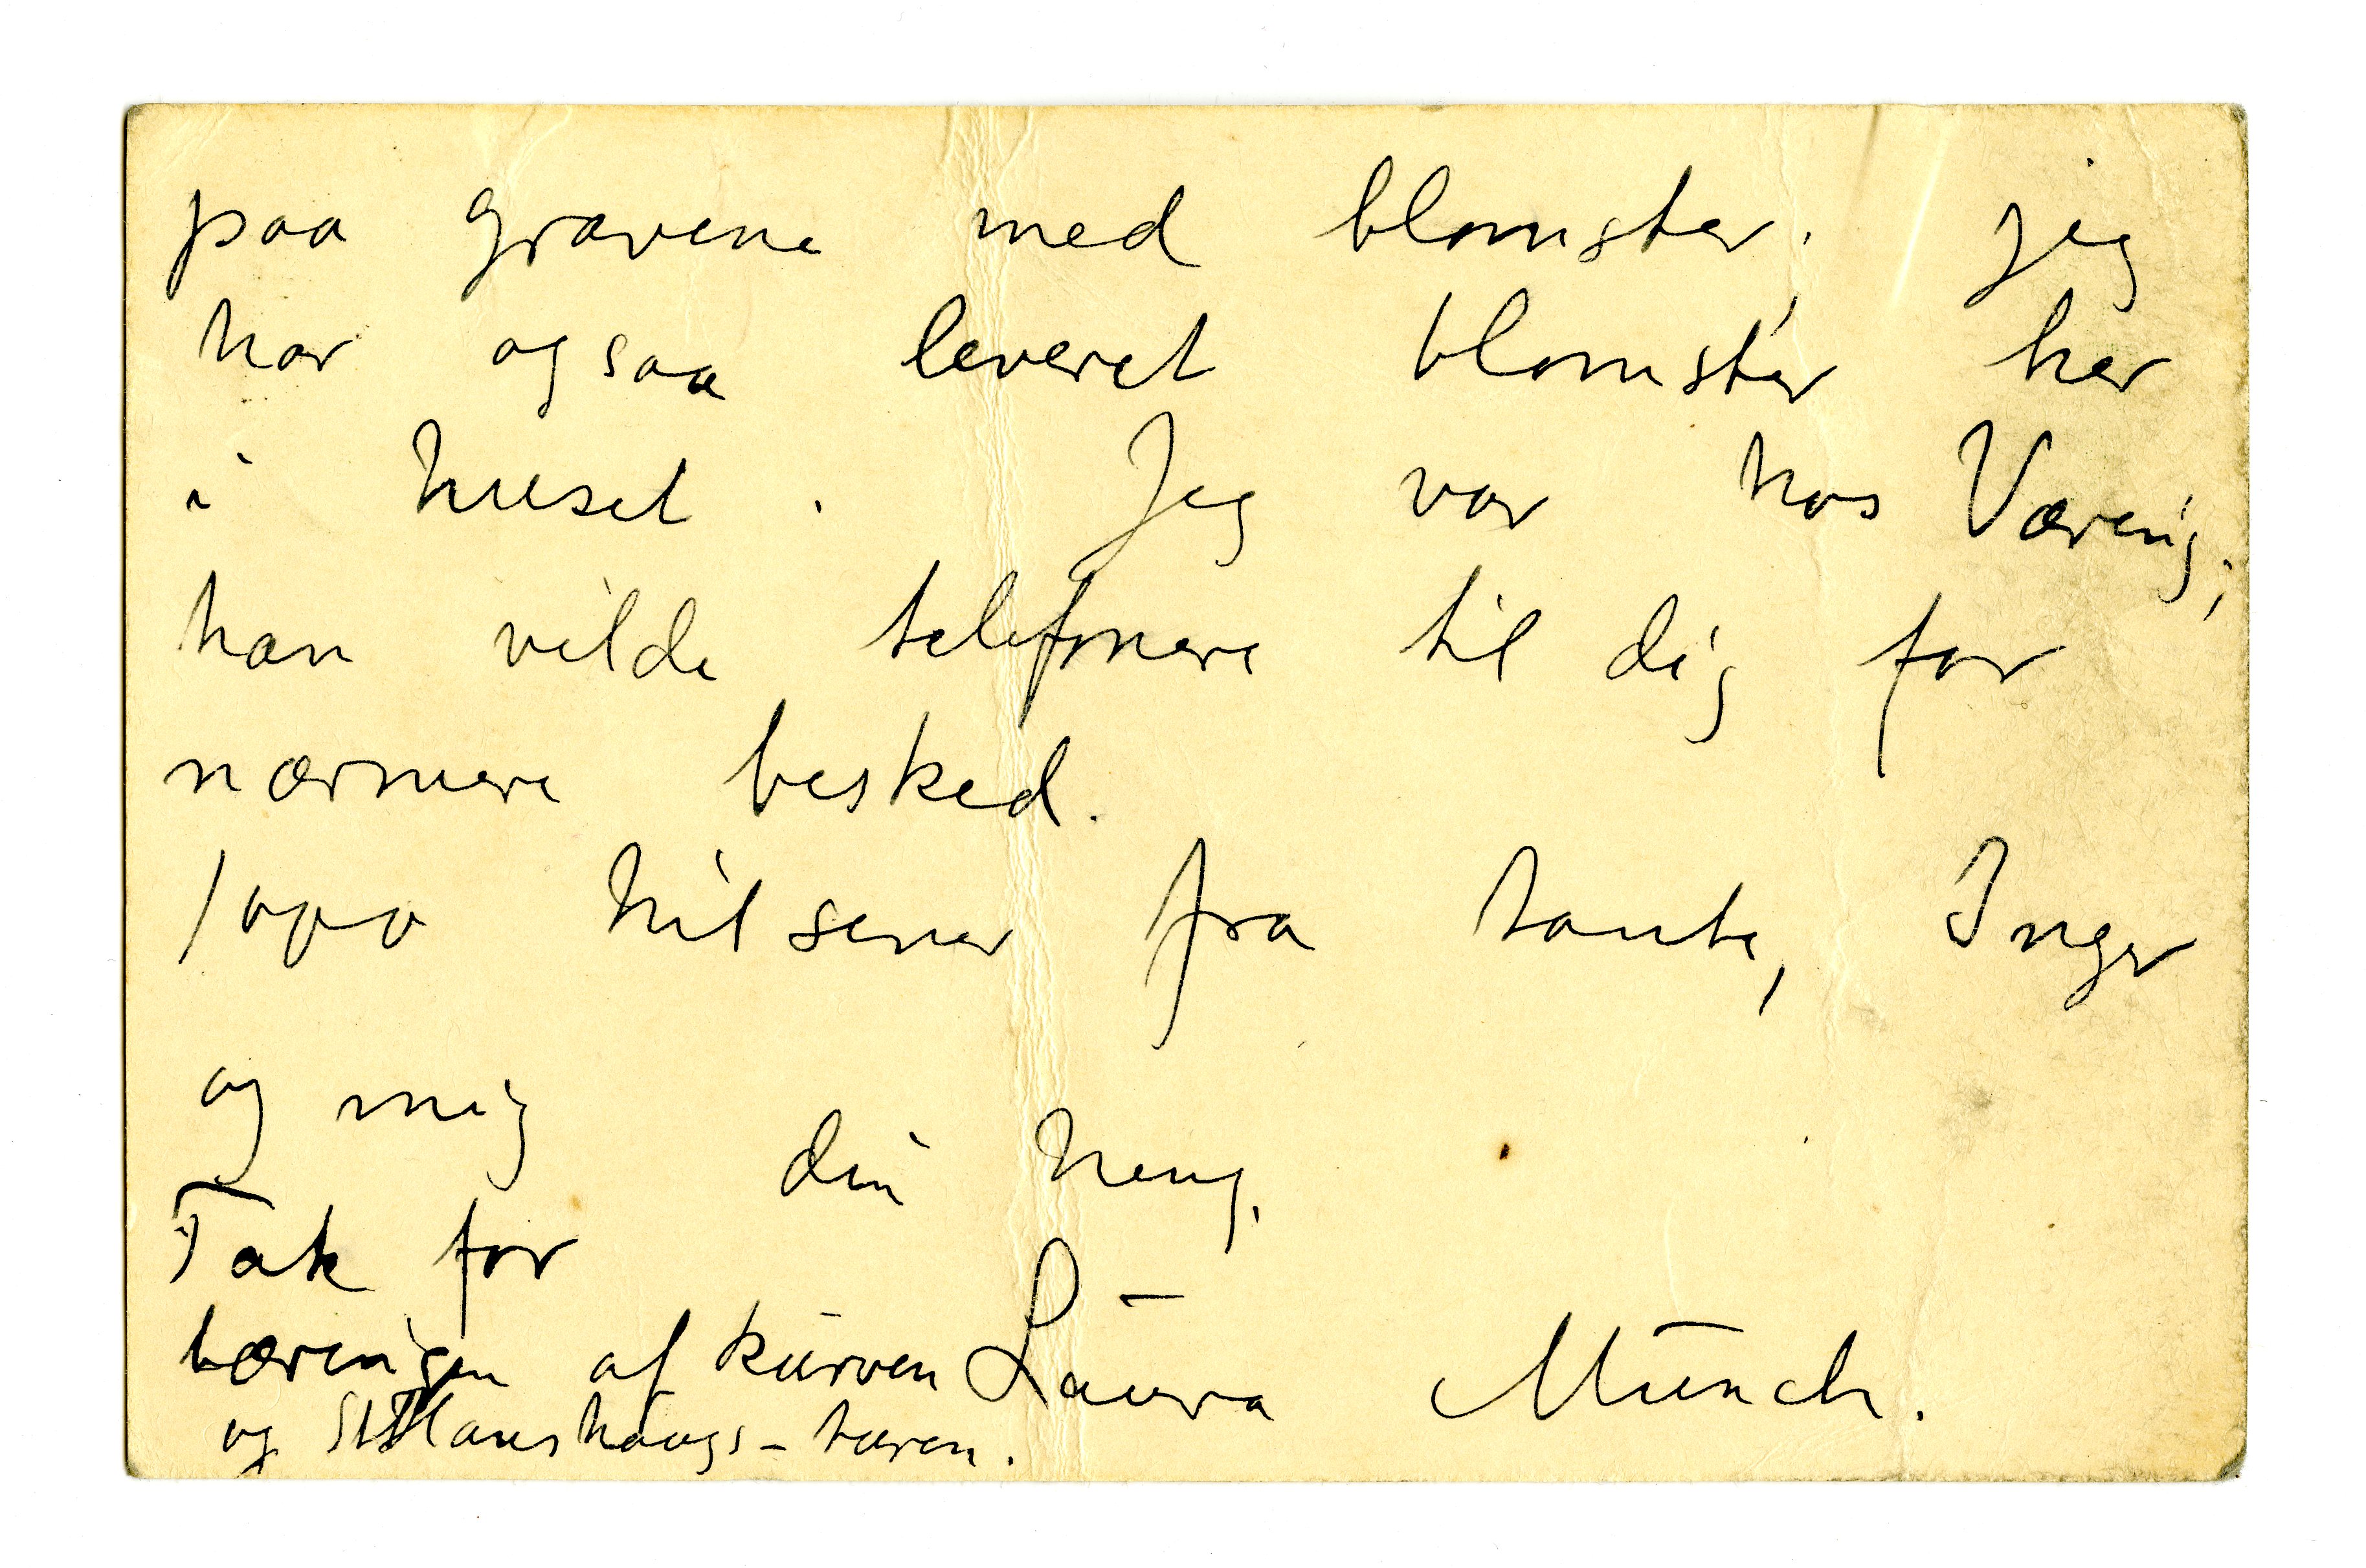 paa gravene med blomster. jeg
har ogsaa leveret blomster her
i huset. Jeg var hos Væring;
han vilde telefonere til dig for
nærmere besked.
1000 hilsener fra tante, Inger
og mig
din heng.
Tak for
bæringen af kurven Laura Munch.
og StHanshaugs-turen.